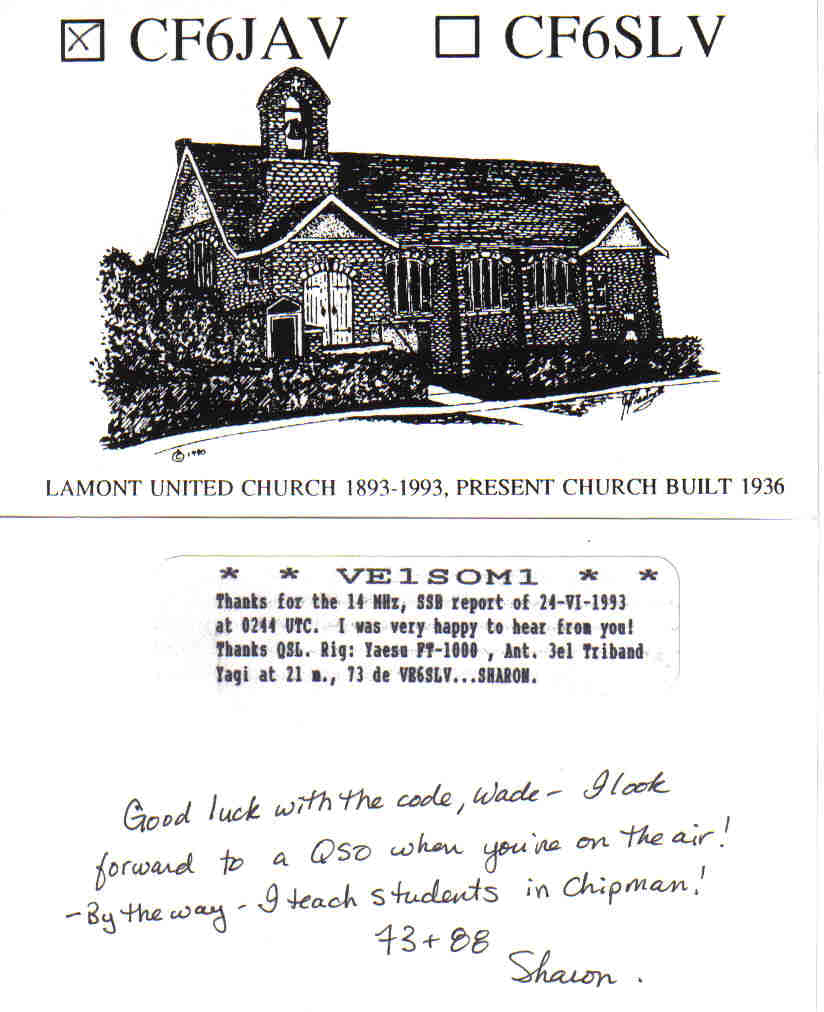 ☒ CF6JAV ☐ CF6SLV
© 1990
LAMONT UNITED CHURCH 1893-1993, PRESENT CHURCH BUILT 1936
* * VE1SOM1 * *
Thanks for the 14 MHz, SSB report of 24-VI-1993
at 0244 UTC. I was very happy to hear from you!
Thanks QSL. Rig: Yaesu FT-1000 , Ant. 3el Triband
Yagi at 21 m., 73 de VE6SLV...SHARON.
Good luck with the code, Wade - I look
forward to a QSO when you're on the air!
- By the way - I teach students in Chipman!
73 + 88
Sharon.